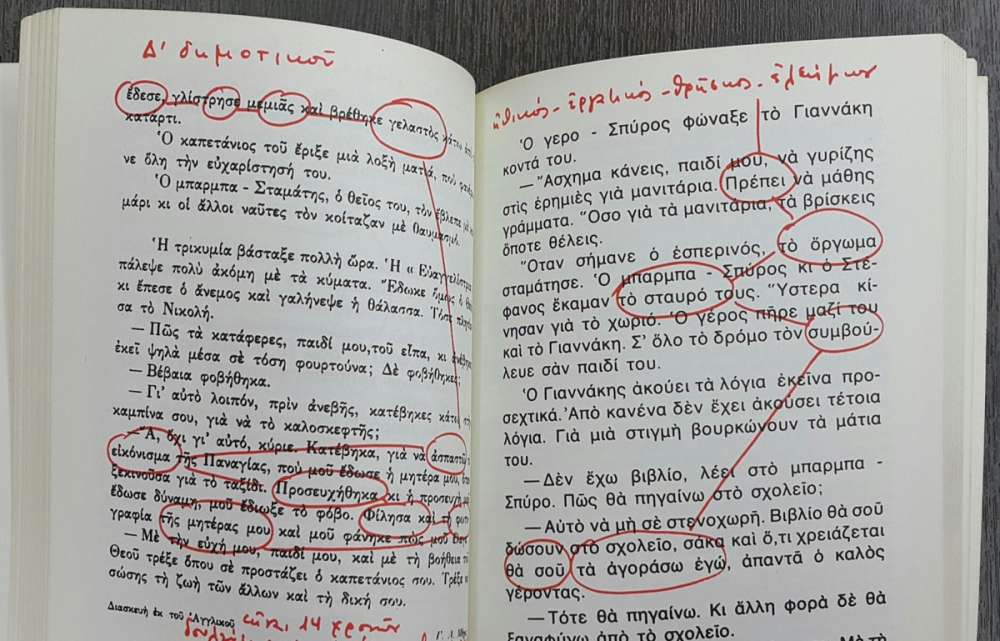 Δ' δημοτικοῦ
ἔδεσε, γλίστρησε μεμιᾶς καὶ βρέθηκε γελαστὸς κάτω ἀπὸ
κατάρτι.
Ὁ καπετάνιος τοῦ ἔριξε μιὰ λοξὴ ματιά, ποὺ
νε ὅλη τὴν εὐχαρίστησή του.
Ὁ μπαρμπα - Σταμάτης, ὁ θεῖος του, τὸν ἔβλεπε
μάρι κι οἱ ἄλλοι ναῦτες τὸν κοίταζαν μὲ θαυμασμό.
Ἡ τρικυμία βάσταξε πολλὴ ὥρα. Ἡ « Εὐαγγελίστρια
πάλεψε πολὺ ἀκόμη μὲ τὰ κύματα. Ἔδωκε ὅμως ὁ
κι ἔπεσε ὁ ἄνεμος καὶ γαλήνεψε ἡ θάλασσα. Τότε
σα τὸ Νικολή.
— Πῶς τὰ κατάφερες, παιδί μου,τοῦ εἶπα, κι ἀνέβηκες
ἐκεῖ ψηλὰ μέσα σὲ τόση φουρτούνα; Δὲ φοβήθηκες;
— Βέβαια φοβήθηκα.
— Γι' αὐτὸ λοιπόν, πρὶν ἀνεβῆς, κατέβηκες κάτω στὴ
καμπίνα σου, γιὰ νὰ τὸ καλοσκεφτῆς;
— Ἄ, ὄχι γι' αὐτό, κύριε. Κατέβηκα, γιὰ νὰ ἀσπαστῶ
εἰκόνισμα τῆς Παναγίας, ποὺ μοῦ ἔδωσε ἡ μητέρα μου,
ξεκινοῦσα γιὰ τὸ ταξίδι. Προσευχήθηκα κι ἡ προσευχὴ
ἔδωσε δύναμη, μοῦ ἔδιωξε τὸ φόβο. Φίλησα καὶ τὴ
γραφία τῆς μητέρας μου καὶ μοῦ φάνηκε πὼς μοῦ
— Μὲ τὴν εὐχή μου, παιδί μου, καὶ μὲ τὴ βοήθεια
Θεοῦ τρέξε ὅπου σὲ προστάζει ὁ καπετάνιος σου. Τρέξε
σώσης τὴ ζωὴ τῶν ἄλλων καὶ τὴ δική σου.
Διασκευὴ ἐκ τοῦ Ἀγγλικοῦ
εἶναι 14 χρονῶν
ἠθικός - ἐργατικός - θρῆσκος - ἐλεήμων
Ὁ γερο - Σπύρος φώναξε τὸ Γιαννάκη
κοντά του.
— Ἄσχημα κάνεις, παιδί μου, νὰ γυρίζης
στὶς ἐρημιὲς γιὰ μανιτάρια. Πρέπει νὰ μάθης
γράμματα. Ὅσο γιὰ τὰ μανιτάρια, τὰ βρίσκεις
ὅποτε θέλεις.
Ὅταν σήμανε ὁ ἑσπερινός, τὸ ὄργωμα
σταμάτησε. Ὁ μπαρμπα - Σπύρος κι ὁ Στέ-
φανος ἔκαμαν τὸ σταυρό τους. Ὕστερα κί-
νησαν γιὰ τὸ χωριό. Ὁ γέρος πῆρε μαζί του
καὶ τὸ Γιαννάκη. Σ' ὅλο τὸ δρόμο τὸν συμβού-
λευε σὰν παιδί του.
Ὁ Γιαννάκης ἀκούει τὰ λόγια ἐκεῖνα προ-
σεχτικά. Ἀπὸ κανένα δὲν ἔχει ἀκούσει τέτοια
λόγια. Γιὰ μιὰ στιγμὴ βουρκώνουν τὰ μάτια
του.
— Δὲν ἔχω βιβλίο, λέει στὸ μπαρμπα -
Σπύρο. Πῶς θὰ πηγαίνω στὸ σχολεῖο;
— Αὐτὸ νὰ μὴ σὲ στενοχωρῆ. Βιβλίο θὰ σοῦ
δώσουν στὸ σχολεῖο, σάκα καὶ ὅ,τι χρειάζεται
θὰ σοῦ τὰ ἀγοράσω ἐγώ, ἀπαντᾶ ὁ καλὸς
γέροντας.
— Τότε θὰ πηγαίνω. Κι ἄλλη φορὰ δὲ θὰ
ξαναφύγω ἀπὸ τὸ σχολεῖο.